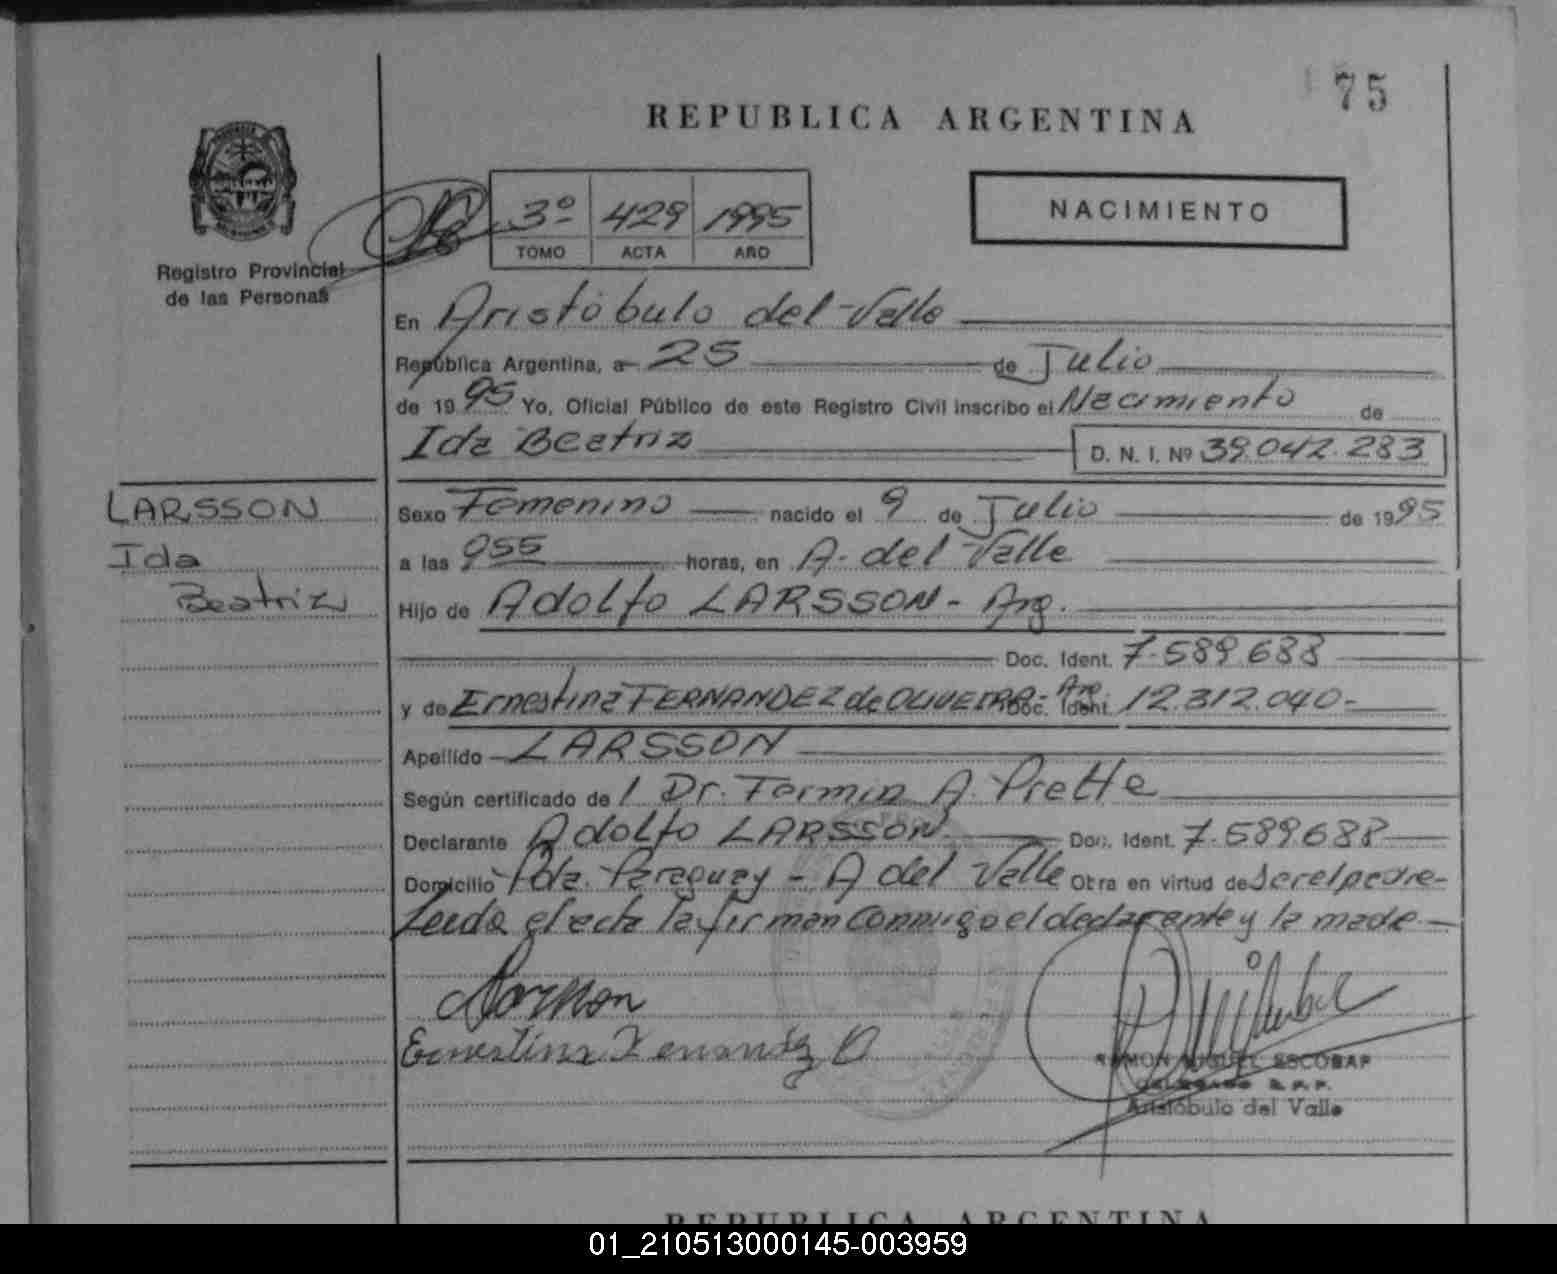 75
REPUBLICA ARGENTINA
3º 429 1995
TOMO ACTA AÑO
NACIMIENTO
Registro Provincial
de las Personas
En Aristóbulo del Valle
República Argentina, a 25 de Julio
de 1995 Yo, Oficial Público de este Registro Civil inscribo el Nacimiento de
Ida Beatriz D. N. I. Nº 39.042.283
LARSSON
Ida
Beatriz
Sexo Femenino nacido el 9 de Julio de 1995
a las 955 horas, en A. del Valle
Hijo de Adolfo LARSSON - Arg.
Doc. Ident. 7.589.688
y de Ernestina FERNANDEZ de OLIVEIRA - Arg. Doc. Ident. 12.312.040-
Apellido LARSSON
Según certificado de Dr. Fermin A.
Declarante Adolfo LARSSON Doc. Ident. 7.589.688
Domicilio Pda. Paraguay - A del Valle Obra en virtud de ser el padre-
Leida el acta la firman conmigo el declarante y la madre
Larsson
Ernestina Fernandez O
RAMON MIGUEL ESCOBAR
DELEGADO R.P.P.
Aristóbulo del Valle
REPUBLICA ARGENTINA
01_210513000145-003959